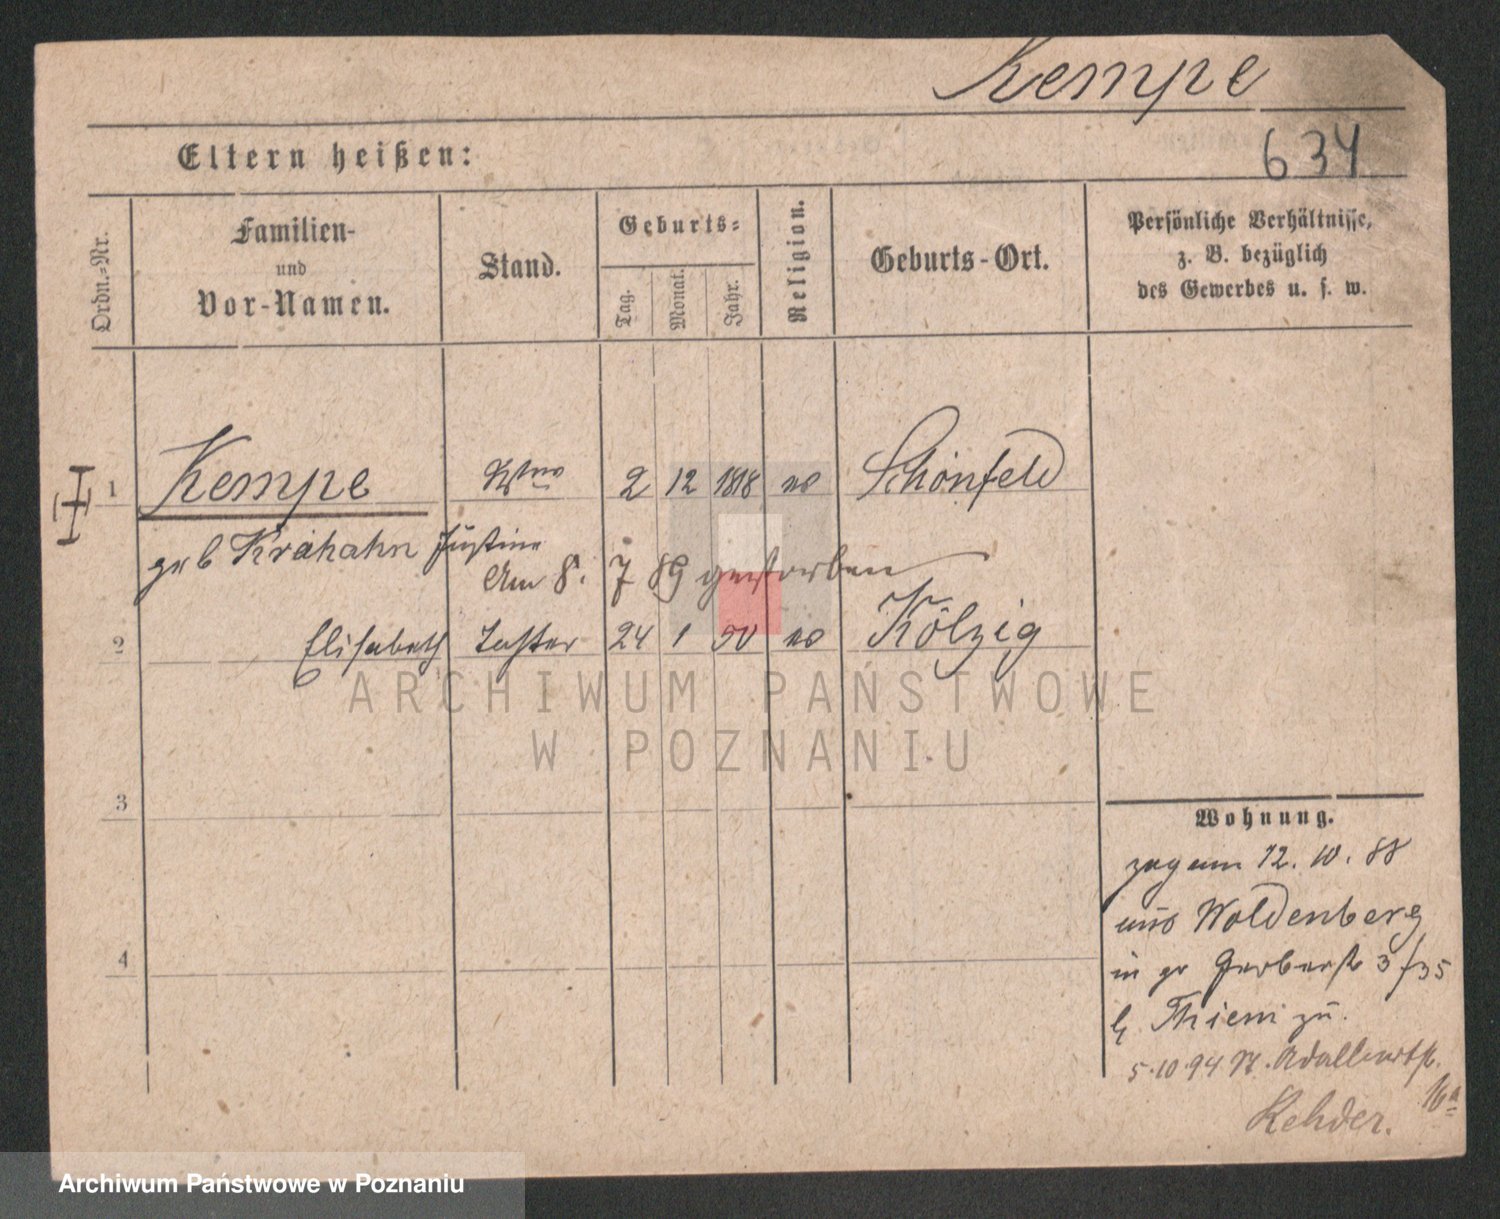 Kempe
634
Eltern heißen:
Ordn.-Nr.
Familien-
und
Vor-Namen.
Stand.
Geburts-
Tag.
Monat.
Jahr.
Religion.
Geburts-Ort.
Persönliche Verhältnisse,
z. B. bezüglich
des Gewerbes u. s. w.
1 Kempe Wwe 2 12 1818 ev Schönfeld
geb Krahahn Justine
Am 8. 7 89 gestorben
2 Elisabeth Tochter 24 1 50 ev Kölzig
3
4
Wohnung.
zog am 12. 10. 88
aus Woldenberg
in gr Gerberst 3/35
b Thiem zu.
5.10.94 St. Adalbertst.
16a
Kehder.
ARCHIWUM PAŃSTWOWE
W POZNANIU
Archiwum Państwowe w Poznaniu